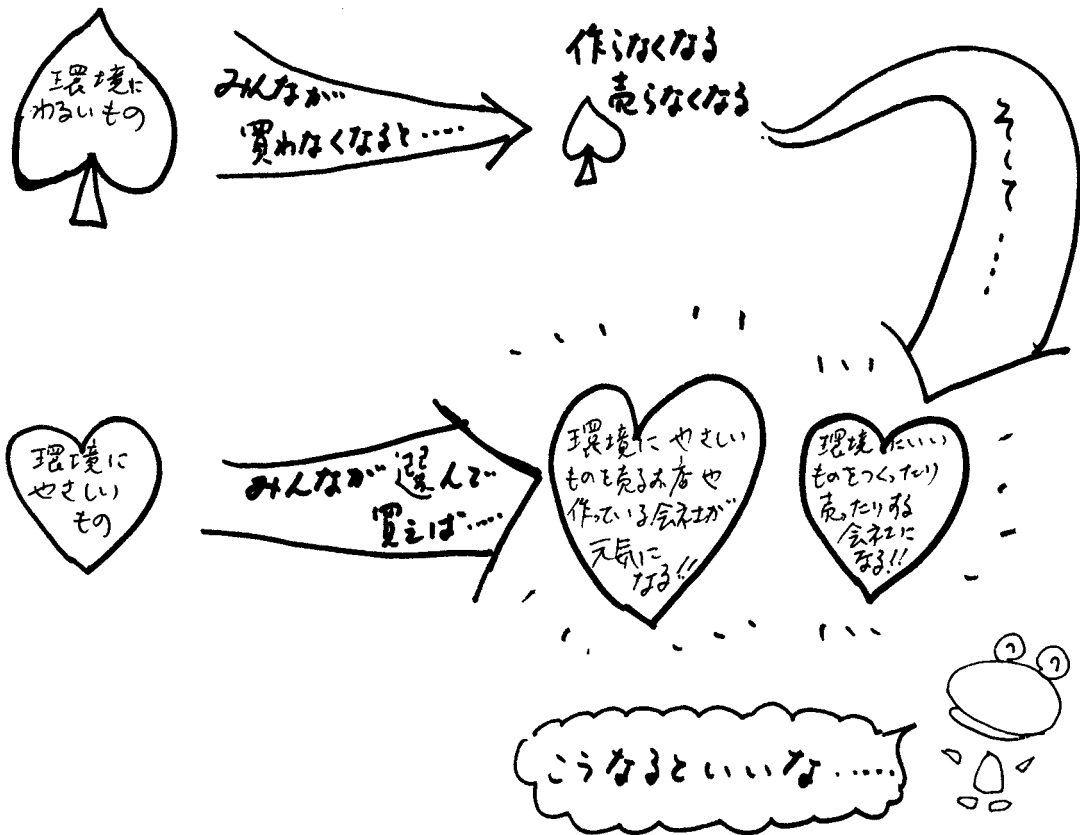 環境に
わるいもの
みんなが
買わなくなると‥‥‥
作らなくなる
売らなくなる
そして‥‥‥
環境に
やさしい
もの
みんなが選んで
買えば‥‥‥
環境にやさしい
ものを売るお店や
作っている会社が
元気に
なる!!
環境にいい
ものをつくったり
売ったりする
会社に
なる!!
こうなるといいな‥‥‥